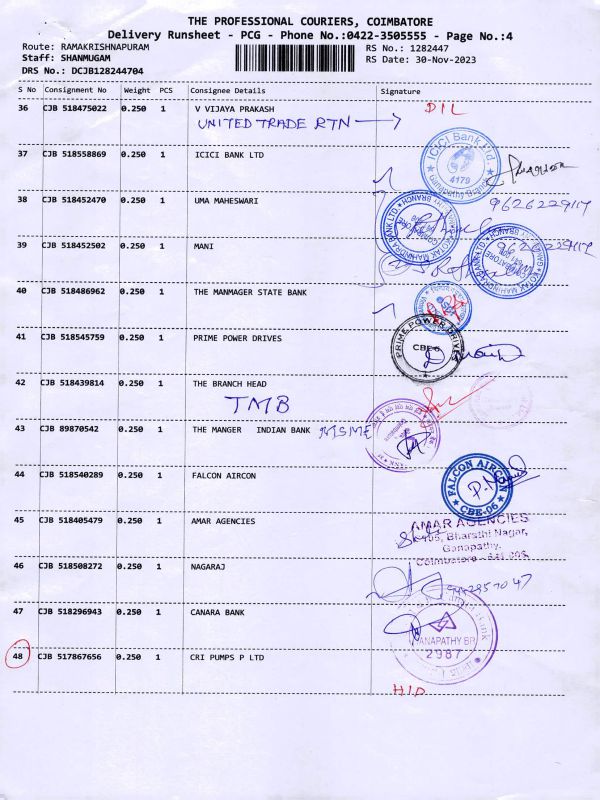 THE PROFESSIONAL COURIERS, COIMBATORE
Delivery Runsheet - PCG - Phone No.:0422-3505555 - Page No.:4
Route: RAMAKRISHNAPURAM RS No.: 1282447
Staff: SHANMUGAM RS Date: 30-Nov-2023
DRS No.: DCJB128244704
S No Consignment No Weight PCS Consignee Details Signature
36 CJB 518475022 0.250 1 V VIJAYA PRAKASH DIL
UNITED TRADE RTN
37 CJB 518558869 0.250 1 ICICI BANK LTD
ICICI Bank Ltd. 4179
38 CJB 518452470 0.250 1 UMA MAHESWARI
9626229117
39 CJB 518452502 0.250 1 MANI
KOTAK MAHINDRA BANK LTD
40 CJB 518486962 0.250 1 THE MANMAGER STATE BANK
41 CJB 518545759 0.250 1 PRIME POWER DRIVES
PRIME POWER DRIVE CBE-6
42 CJB 518439814 0.250 1 THE BRANCH HEAD
TMB
43 CJB 89870542 0.250 1 THE MANGER INDIAN BANK MSME
44 CJB 518540289 0.250 1 FALCON AIRCON
FALCON AIRCON CBE-06
45 CJB 518405479 0.250 1 AMAR AGENCIES
AMAR AGENCIES
Bharathi Nagar,
Ganapathy,
Coimbatore - 641 006
46 CJB 518508272 0.250 1 NAGARAJ
47 CJB 518296943 0.250 1 CANARA BANK
GANAPATHY BR
2987
48 CJB 517867656 0.250 1 CRI PUMPS P LTD
HID